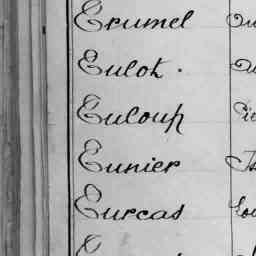 Erumel
Eulot.
Euloup
Eunier
Eurcas